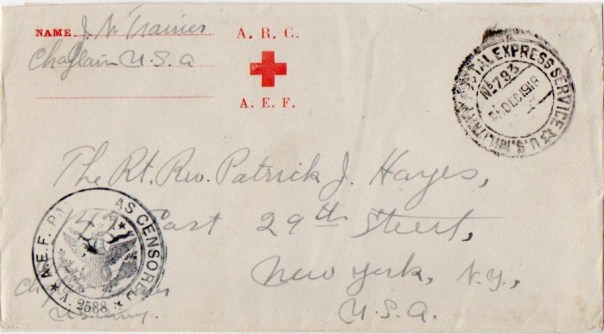 NAME. J. N. Trainer
Chaplain U.S.A
A. R. C.
A. E. F.
U.S. MILITARY POSTAL EXPRESS SERVICE
No 793
DEC 1918
The Rt. Rev. Patrick J. Hayes,
142 East 29th Street,
New York, N.Y.,
U.S.A.
A.E.F. PASSED AS CENSORED
A. 2588
U.S. Army.